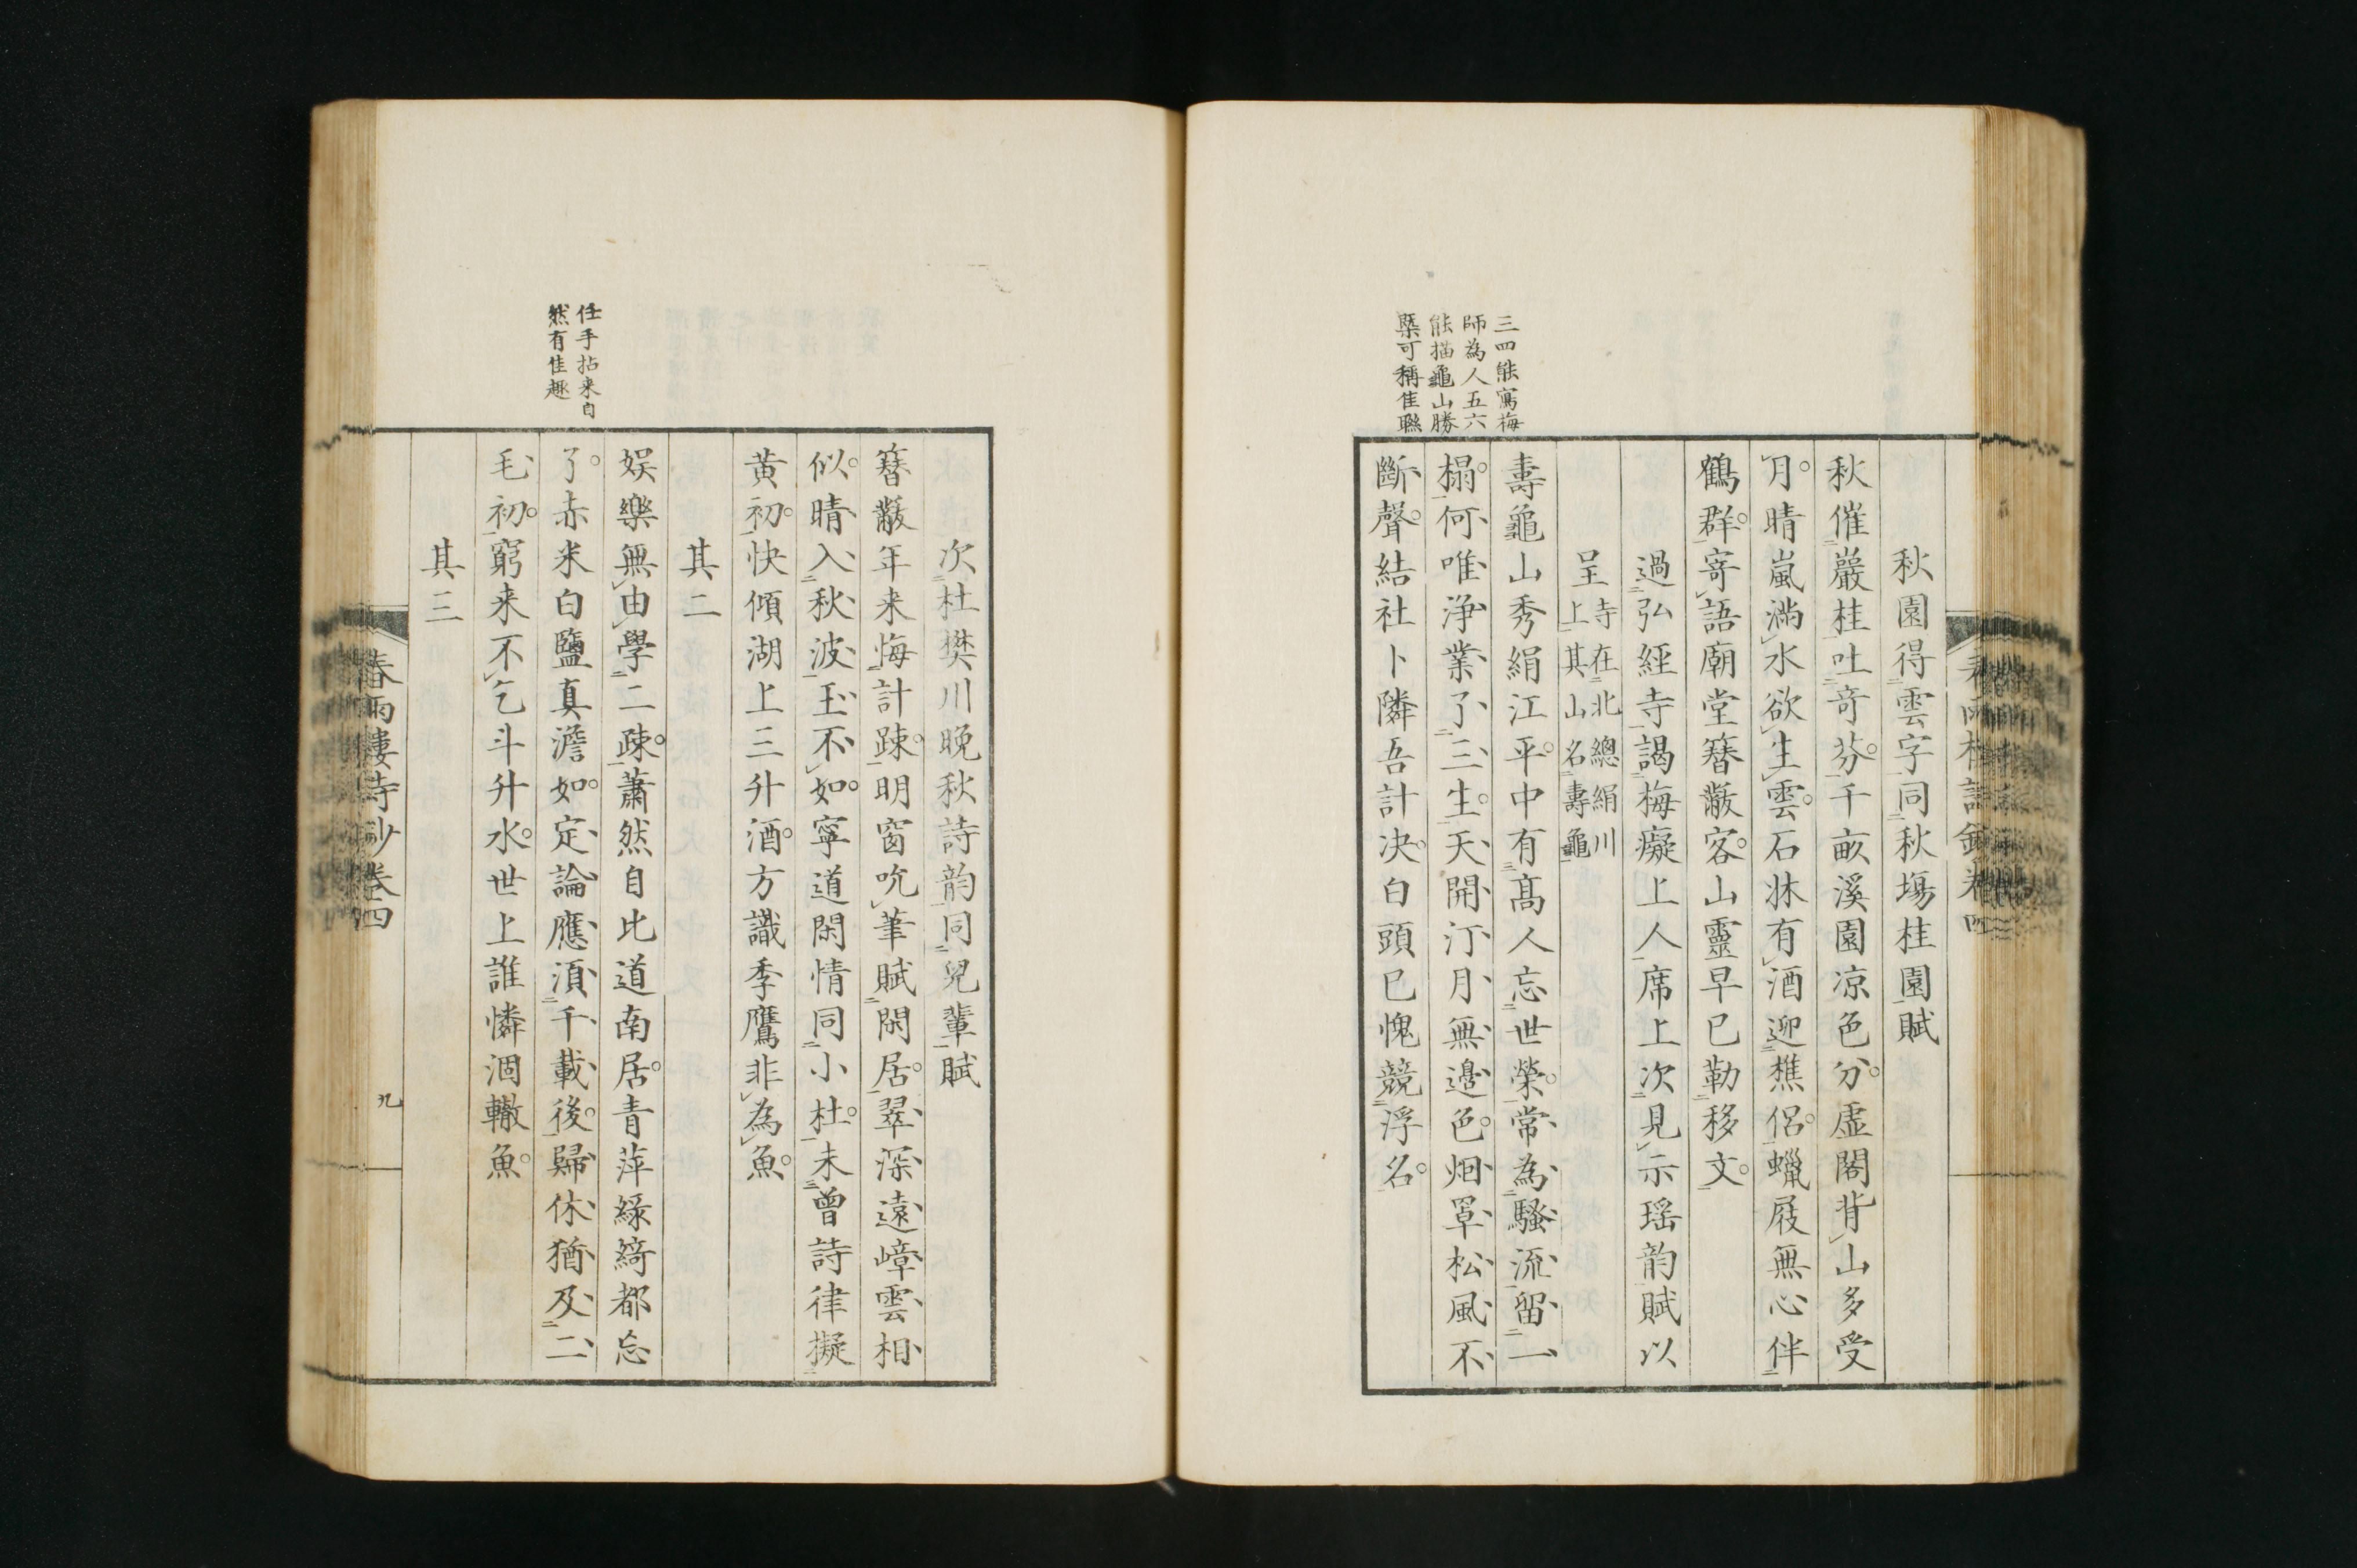 秋園得雲字同秋塲桂園賦
秋催巖桂吐奇芬千畝溪園凉色分虛閣背山多受
月晴嵐滿水欲生雲石牀有酒迎樵侶蠟屐無心伴
鶴群寄語廟堂簪黻客山靈早已勒移文
過弘經寺謁梅癡上人席上次見示瑶韵賦以
呈
寺在北總絹川
上其山名壽龜
壽龜山秀絹江平中有髙人忘世榮常為騷流留一
榻何唯浄業了三生天開汀月無邊色烟罩松風不
斷聲結社卜隣吾計决白頭已愧競浮名
三四能寫梅
師為人五六
能描龜山勝
槩可稱佳聯
次杜樊川晚秋詩韵同兒輩賦
簪黻年来悔計踈明窗吮筆賦閑居翠深遠嶂雲相
似晴入秋波玉不如寧道閑情同小杜未曾詩律擬
黄初快傾湖上三升酒方識季鷹非為魚
其二
娱樂無由學二疎蕭然自比道南居青萍綠綺都忘
了赤米白鹽真澹如定論應湏千載後歸休猶及二
毛初窮来不乞斗升水世上誰憐涸轍魚
其三
任手拈来自
然有佳趣
春雨樓詩鈔卷四
九